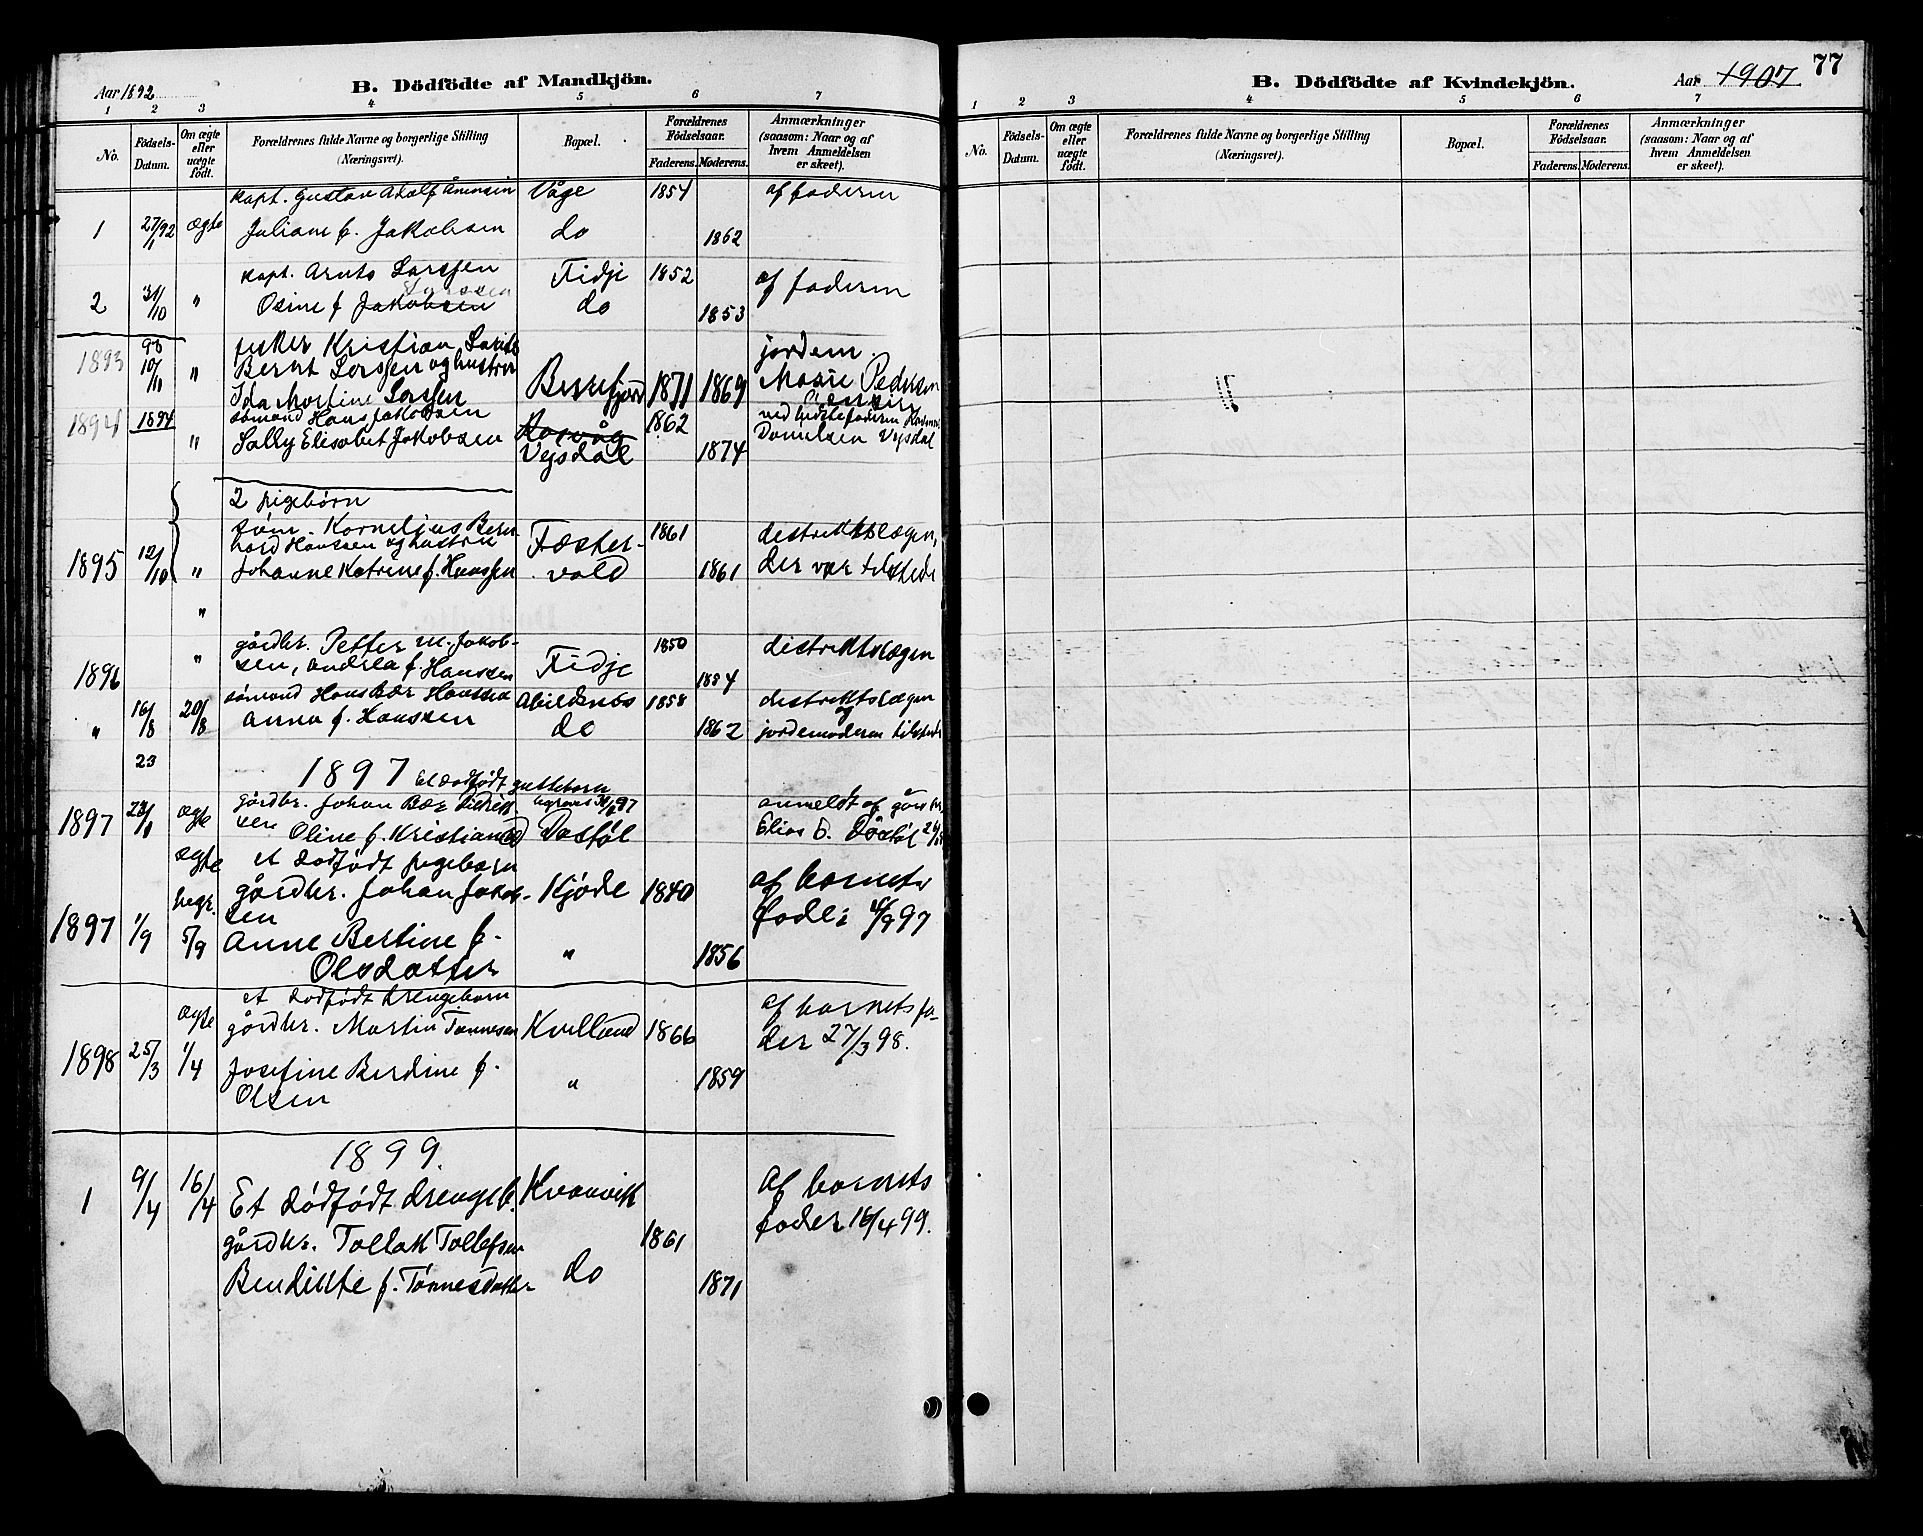 Aar 1892
B. Dödfödte af Mandkjön.
1 2 3 4 5 6 7
No.
Födsels-Datum.
Om ægte eller uægte födt.
Forældrenes fulde Navne og borgerlige Stilling (Næringsvei).
Bopæl.
Forældrenes Födselsaar.
Faderens. Moderens.
Anmærkninger (saasom: Naar og af hvem Anmeldelsen er skeet).
kapt. Gustav Adolf Våge 1854 af faderen
1 27/1 92 ægte Juliane f. Jakobsen do 1862
kapt. Arnts Larssen Fidje 1852 af faderen
2 31/10 " Osine f. Jakobsen Larssen do 1853
1893 93 fisker Kristian jordem.
10/11 " Bernt Larssen og hustru Marie Pedersen
Ida Martine Larssen 1871 1869
1894 1894 sømand Hans Jakobsen 1862 ved
" Sally Elisabet Jakobsen Vejsdal 1874 Danielsen Vejsdal
2 pigebørn
søm. Kornelius Bern- Fæster- 1861 distriktslægen,
hard Hanssen og hustru
1895 12/10 " Johanne Katrine f. Hanssen vold 1861 der var tilstede
"
gårdbr. Petter M. Jakob- 1850 distriktslægen
" sen, Andrea f. Hanssen Fidje
1896
sømand Hans Bær Hanssen Abildsnes 1858 distriktslægen og
" 16/8 20/8 Anna f. Hanssen do 1862 jordemoderen tilstede
23
1897 Et dødfødt guttebarn
gårdbr. Johan Bær Didrik- begraves 97 anmeldt af
1897 23/1 ægte sen Oline f. Dåstøl Elias D. Dåstøl
ægte et dødfødt pigebarn
gårdbr. Johan Jakob- Kjøde 1840 af barnets
begr. sen fader 97
1897 1/9 5/9 Anne Bertine f. " 1856
Olsdatter
et dødfødt drengebarn
ægte gårdbr. Martin Tønnesen Kvilland 1866 af barnets fa-
1898 25/3 1/4 der 27/3 98.
Josefine Berdine f. " 1859
Olsen
1899.
1 9/4 16/4 Et dødfødt drengeb. Kvanvik af barnets
fader 16/4 99.
gårdbr. Tollak Tollefsen 1861
Bendikte f. Tønnesdatter do 1871
B. Dödfödte af Kvindekjön.
Aar 1907
77
1 2 3 4 5 6 7
No.
Födsels-Datum.
Om ægte eller uægte födt.
Forældrenes fulde Navne og borgerlige Stilling (Næringsvei).
Bopæl.
Forældrenes Födselsaar.
Faderens. Moderens.
Anmærkninger (saasom: Naar og af hvem Anmeldelsen er skeet).